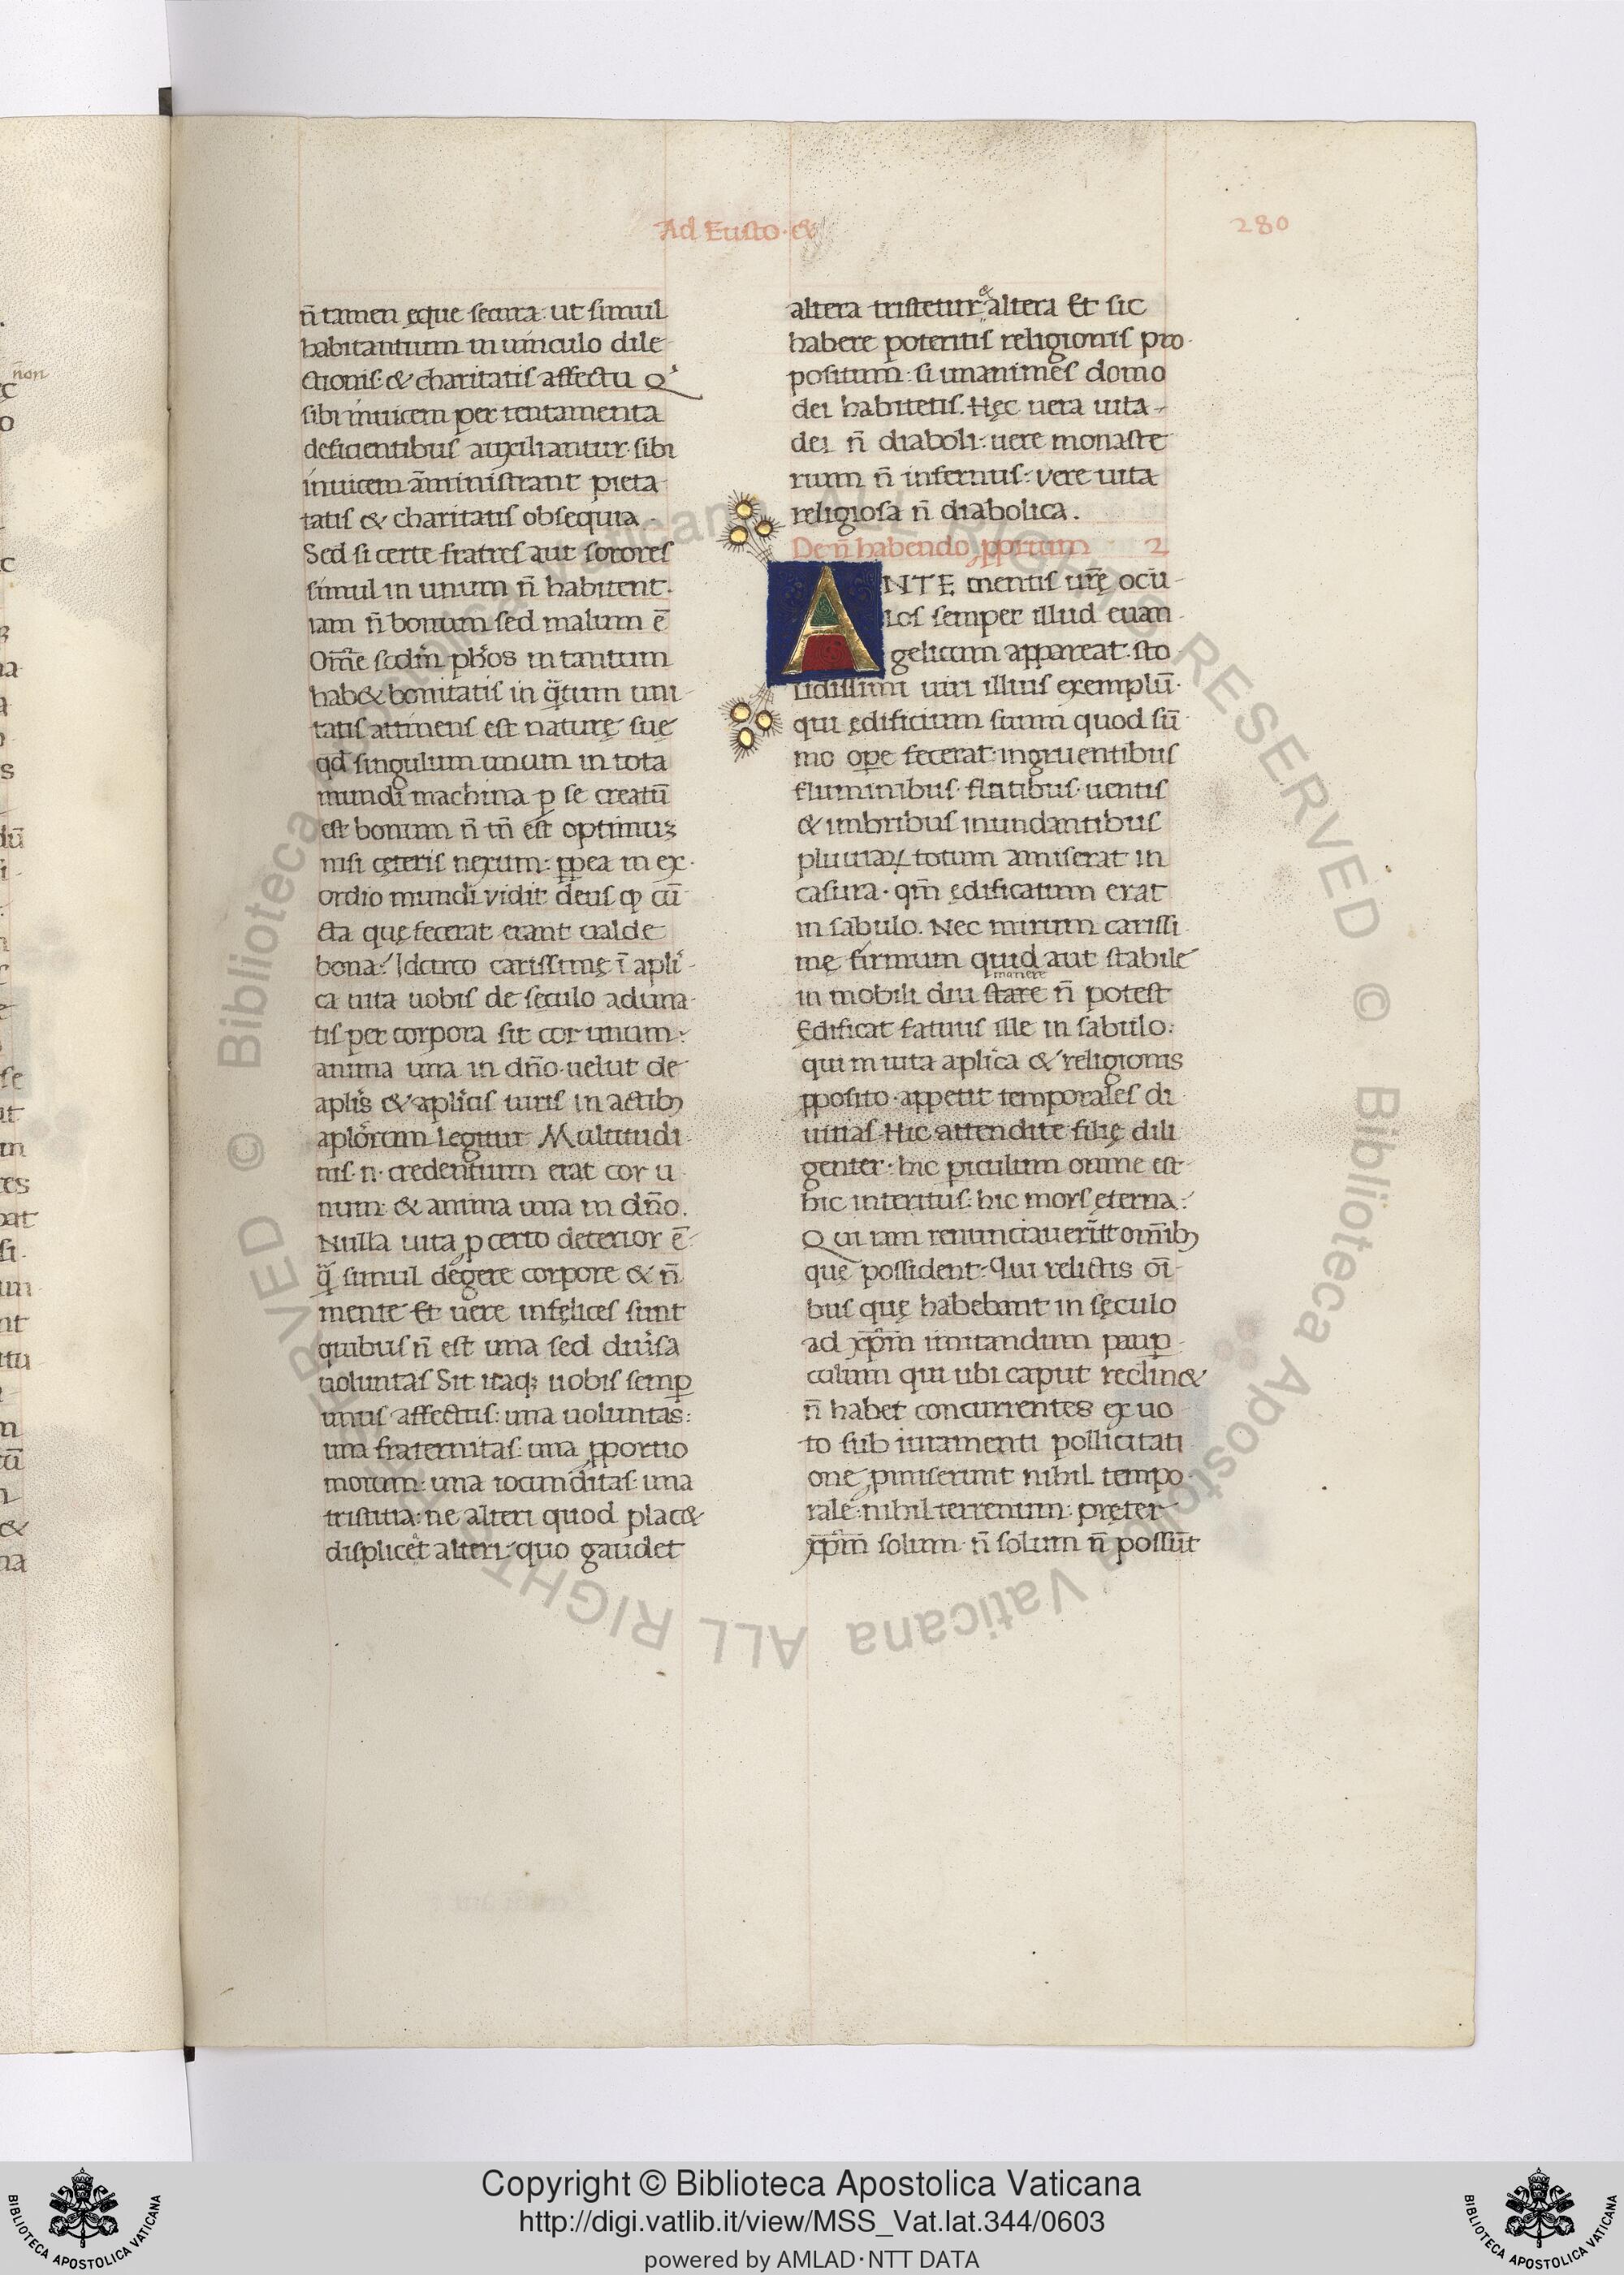 Ad Eusto. &
280
n̄ tamen ęque secura: ut simul
habitantium in uinculo dile-
ctionis: & charitatis affectu Q
sibi inuicem per tentamenta
deficientibus auxiliantur. sibi
inuicem āministrant pieta-
tatis & charitatis obsequia.
Sed si certe fratres aut sorores
simul in unum n̄ habitent.
iam n̄ bonum sed malum ē
Om̄e scdm̄ ph̄os in tantum
hab& bonitatis in q̄tum uni-
tatis attinens est naturę suę
qd̄ singulum unum in tota
mundi machina p se creatū
est bonum n̄ tn̄ est optimuʒ
nisi cęteris nexum: ppea in ex-
ordio mundi vidit deus qɔ cū-
cta quę fecerat erant ualde
bona: Idcirco carissimę ī apli-
ca uita uobis de seculo aduna-
tis per corpora sit cor unum:
anima una in dn̄o. uelut de
aplis & aplicis uiris in actibꝫ
aplorum legitur Multitudi-
nis. n. credentium erat cor u
num: & anima una in dn̄o.
Nulla uita p certo deterior ē
q̄ simul degere corpore & n̄
mente Et uere infęlices sunt
quibus n̄ est una sed diuisa
uoluntas Sit itaqꝫ uobis semp
unus affectus: una uoluntas:
una fraternitas: una pportio
morum: una iocunditas: una
tristitia: ne alteri quod plac&
displicet alteri: quo gaudet
altera tristetur & altera Et sic
habere poteritis religionis pro-
positum: si unanimes domo
dei habitetis. Hęc uera uita
dei n̄ diaboli: uere monaste
rium n̄ infernus: Vere uita
religiosa n̄ diabolica.
De n̄ habendo pprium 2
ANTE mentis ur̄ę ocu-
los semper illud euan
gelicum appareat. sto
lidissimi uiri illius exemplū.
qui ędificium suum quod sū
mo ope fecerat: ingruentibus
fluminibus. flatibus. uentis
& imbribus inundantibus
pluuiaꝝ totum amiserat in
casura. qm̄ ędificatum erat
in sabulo. Nec mirum carissi
mę firmum quid aut stabile
manere
in mobili diu stare n̄ potest
Ędificat fatuus ille in sabulo:
qui in uita aplica & religionis
pposito. appetit temporales di
uitias. Hic attendite filię dili
genter. hic piculum omne est
hic interitus: hic mors ęterna:
Qui iam renunciauerīt om̄ibꝫ
que possident: Qui relictis oī
bus quę habebant in sęculo
ad xp̄m imitandum paup
culum qui ubi caput reclin&
n̄ habet concurrentes ex uo
to sub iuramenti pollicitati
one pmiserunt nihil tempo-
rale: nihil terrenum: pręter
xp̄m solum. n̄ solum n̄ possūt
Copyright © Biblioteca Apostolica Vaticana
http://digi.vatlib.it/view/MSS_Vat.lat.344/0603
powered by AMLAD·NTT DATA
BIBLIOTECA APOSTOLICA VATICANA
BIBLIOTECA APOSTOLICA VATICANA
© Biblioteca Apostolica Vaticana ALL RIGHTS RESERVED © Biblioteca Apostolica Vaticana ALL RIGHTS RESERVED